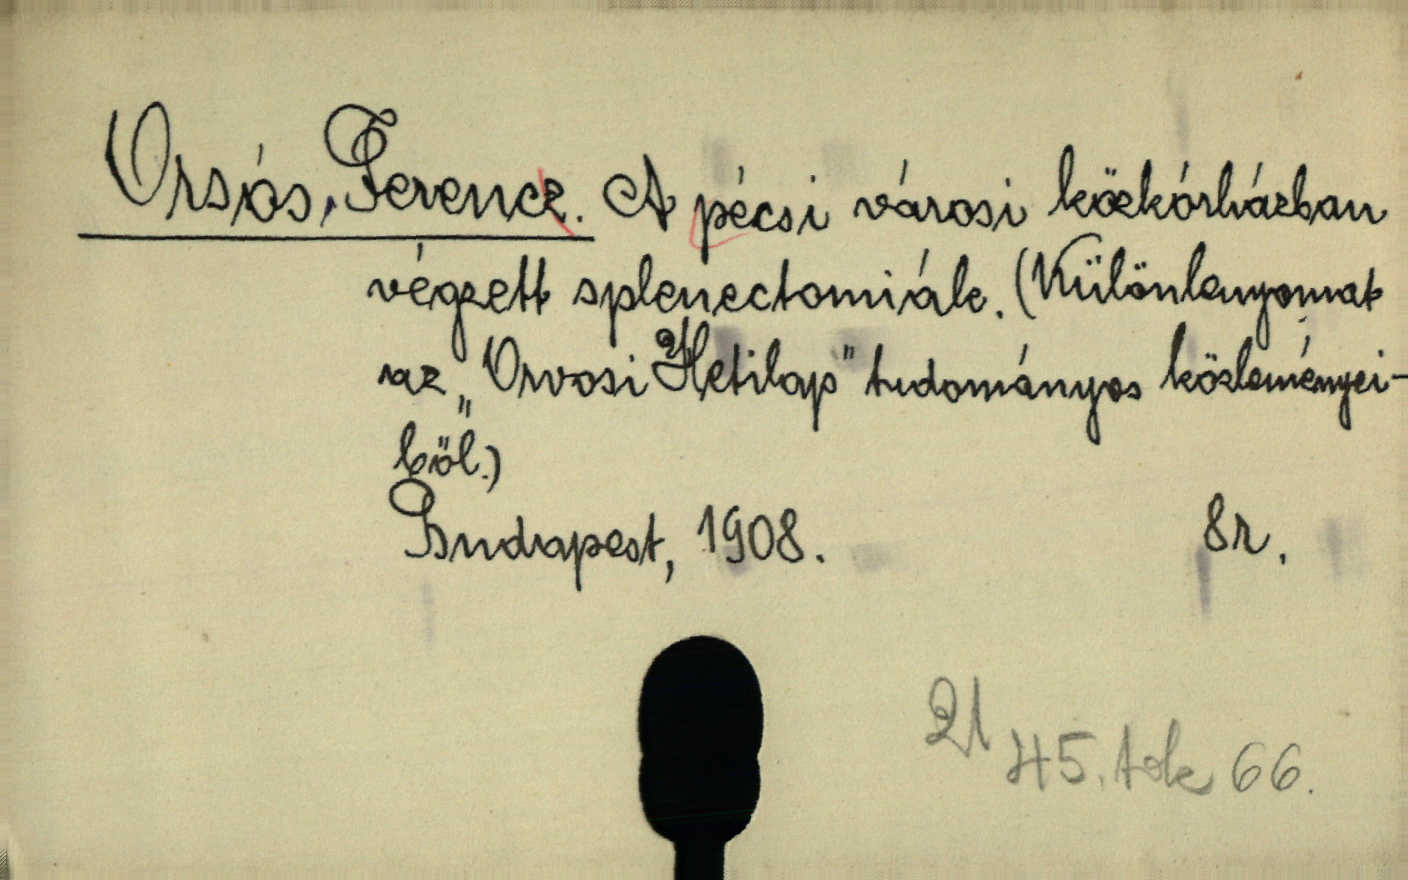 Orsós, Ferencz. A pécsi városi közkórházban
végzett splenectomiák. (Különlenyomat
az „Orvosi Hetilap" tudományos közleményei-
ből.)
Budapest, 1908. 8r.
21
45. tok 66.